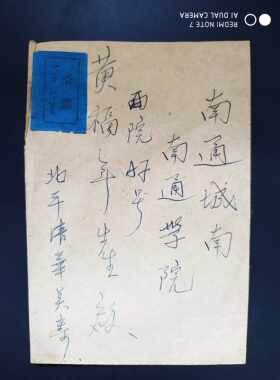 REDMI NOTE 7
AI DUAL CAMERA
南通城南
南通学院
西院好号
黄福年先生啟
北平清華吴寿